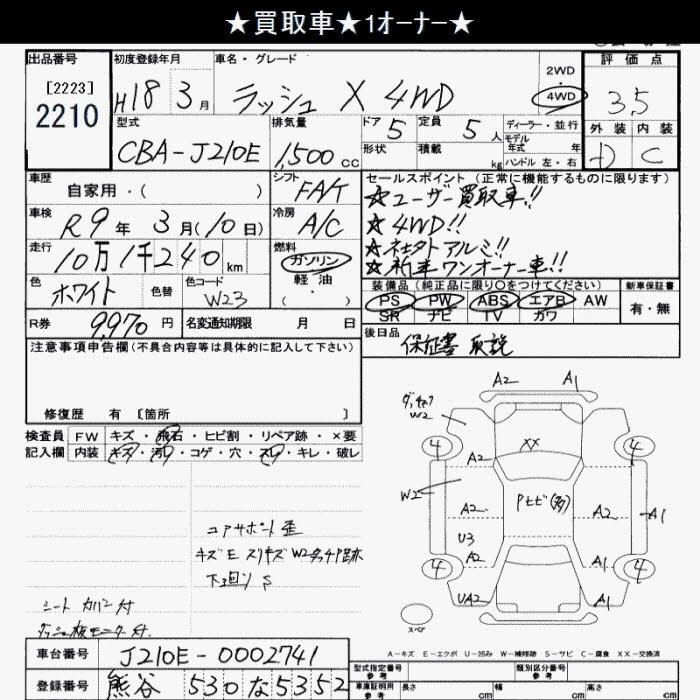 ★買取車★1オーナー★
出品番号 初度登録年月 車名・グレード 2WD 評価点
[2223]
2210
H18 3月 ラッシュ X 4WD ・4WD 3.5
型式 排気量 ドア 5 定員 5人 ディーラー・並行 外装 内装
CBA-J210E 1,500cc 形状 積載 kg モデル年式 年 ハンドル 左・右 C
車歴 シフト セールスポイント(正常に機能するものに限ります)
自家用・( ) FA/T ☆ユーザー買取車!!
車検 R9年 3月(10日) 冷房 A/C ☆4WD!!
走行 10万1千240km 燃料 ガソリン ☆社外アルミ!!
軽油 ( ) ☆新車ワンオーナー車!!
色 ホワイト 色替 色コード W23
装備品(純正品に限り○をつけてください) 新車保証書
PS PW ABS エアB AW 有・無
SR ナビ TV カワ
R券 9,970円 名変通知期限 月 日
後日品 保証書 取説
注意事項申告欄(不具合内容等は具体的に記入して下さい)
修復歴 有 [箇所 ]
検査員 FW キズ・飛石・ヒビ割・リペア跡・×要
記入欄 内装 キズ・汚レ・コゲ・穴・スレ・キレ・破レ
コアサポート歪
キズE スリキズ W2タッチP跡
下廻りS
シートカバー付
A2 A1
W2
4 XX 4
A2
W2 Pヒビ(多)
A2 A2 A1
U3
A2 A1
4 4
UA2 A1
スペア
A-キズ E-エクボ U-凹み W-補修跡 S-サビ C-腐食 XX-交換済
車台番号 J210E-0002741
登録番号 熊谷 530 な 5352
型式指定番号 参考 類別区分番号 参考
車庫証明用 参考 長さ cm 幅 cm 高さ cm